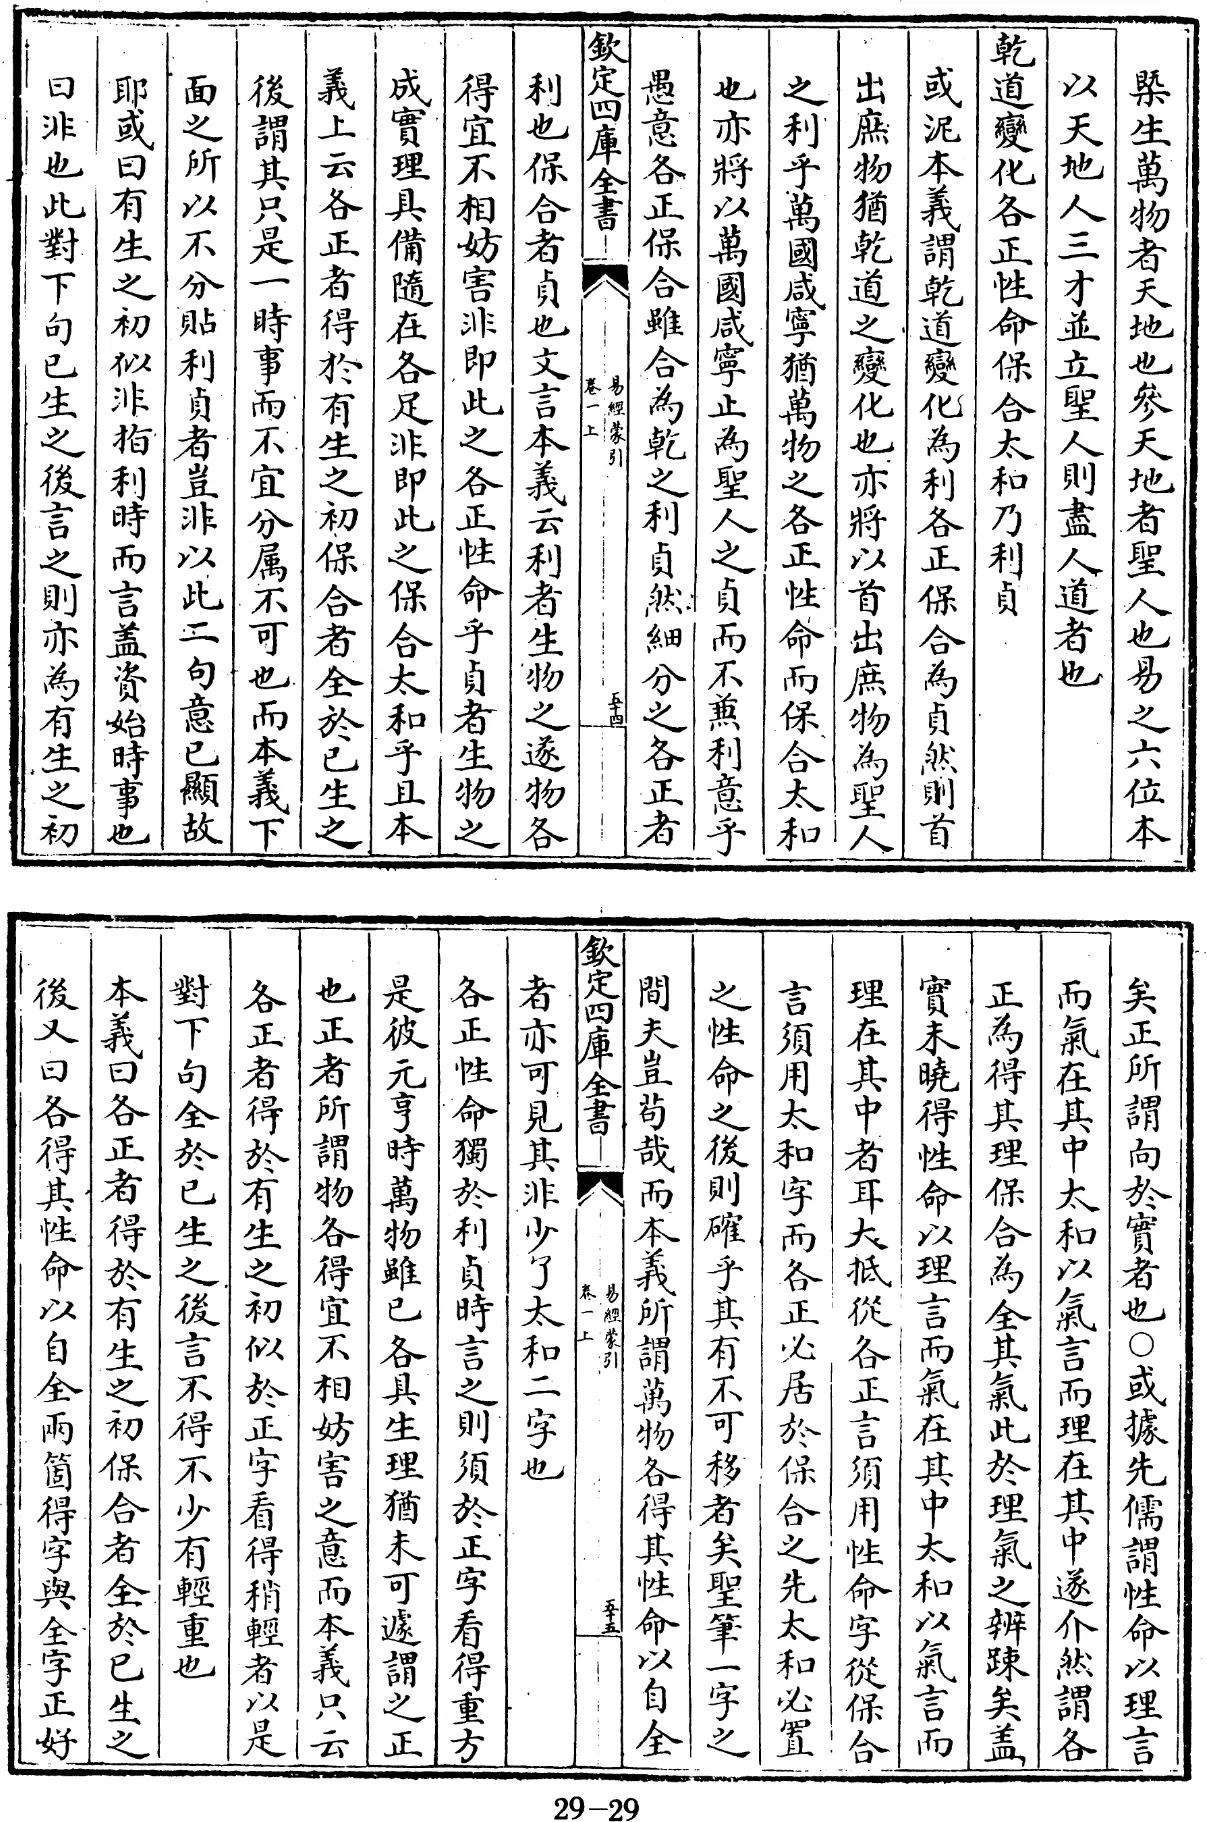 槩生萬物者天地也參天地者聖人也易之六位本
以天地人三才並立聖人則盡人道者也
乾道變化各正性命保合太和乃利貞
或泥本義謂乾道變化為利各正保合為貞然則首
出庶物猶乾道之變化也亦將以首出庶物為聖人
之利乎萬國咸寧猶萬物之各正性命而保合太和
也亦將以萬國咸寧止為聖人之貞而不兼利意乎
愚意各正保合雖合為乾之利貞然細分之各正者
欽定四庫全書
易經蒙引
卷一上
五十四
利也保合者貞也文言本義云利者生物之遂物各
得宜不相妨害非即此之各正性命乎貞者生物之
成實理具備隨在各足非即此之保合太和乎且本
義上云各正者得於有生之初保合者全於已生之
後謂其只是一時事而不宜分属不可也而本義下
面之所以不分貼利貞者豈非以此二句意已顯故
耶或曰有生之初似非指利時而言蓋資始時事也
曰非也此對下句已生之後言之則亦為有生之初
矣正所謂向於實者也○或據先儒謂性命以理言
而氣在其中太和以氣言而理在其中遂介然謂各
正為得其理保合為全其氣此於理氣之辨踈矣盖
實未曉得性命以理言而氣在其中太和以氣言而
理在其中者耳大抵從各正言須用性命字從保合
言須用太和字而各正必居於保合之先太和必置
之性命之後則確乎其有不可移者矣聖筆一字之
間夫豈苟哉而本義所謂萬物各得其性命以自全
欽定四庫全書
易經蒙引
卷一上
五十五
者亦可見其非少了太和二字也
各正性命獨於利貞時言之則須於正字看得重方
是彼元亨時萬物雖已各具生理猶未可遽謂之正
也正者所謂物各得宜不相妨害之意而本義只云
各正者得於有生之初似於正字看得稍輕者以是
對下句全於已生之後言不得不少有輕重也
本義曰各正者得於有生之初保合者全於已生之
後又曰各得其性命以自全兩箇得字與全字正好
29-29